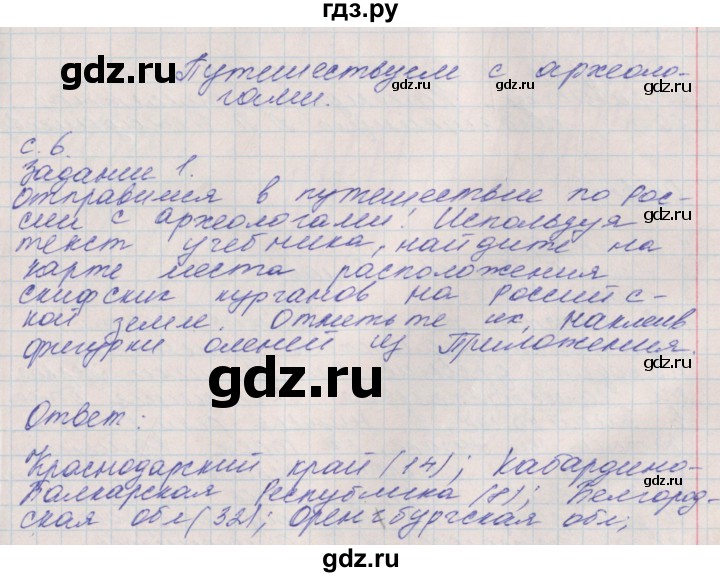 гдз.ру
Путешествуем с археоло-
гами.
с. 6
Задание 1.
Отправимся в путешествие по Рос-
сии с археологами! Используя
текст учебника, найдите на
карте места расположения
скифских курганов на Российс-
кой земле. Отметьте их, наклеив
фигурки оленей из Приложения.
Ответ:
Краснодарский край (14); Кабардино-
Балкарская Республика (8); Белгород-
ская обл (32); Оренбургская обл;
gdz.ru
gdz.ru
gdz.ru
gdz.ru
gdz.ru
gdz.ru
gdz.ru
gdz.ru
gdz.ru
gdz.ru
gdz.ru